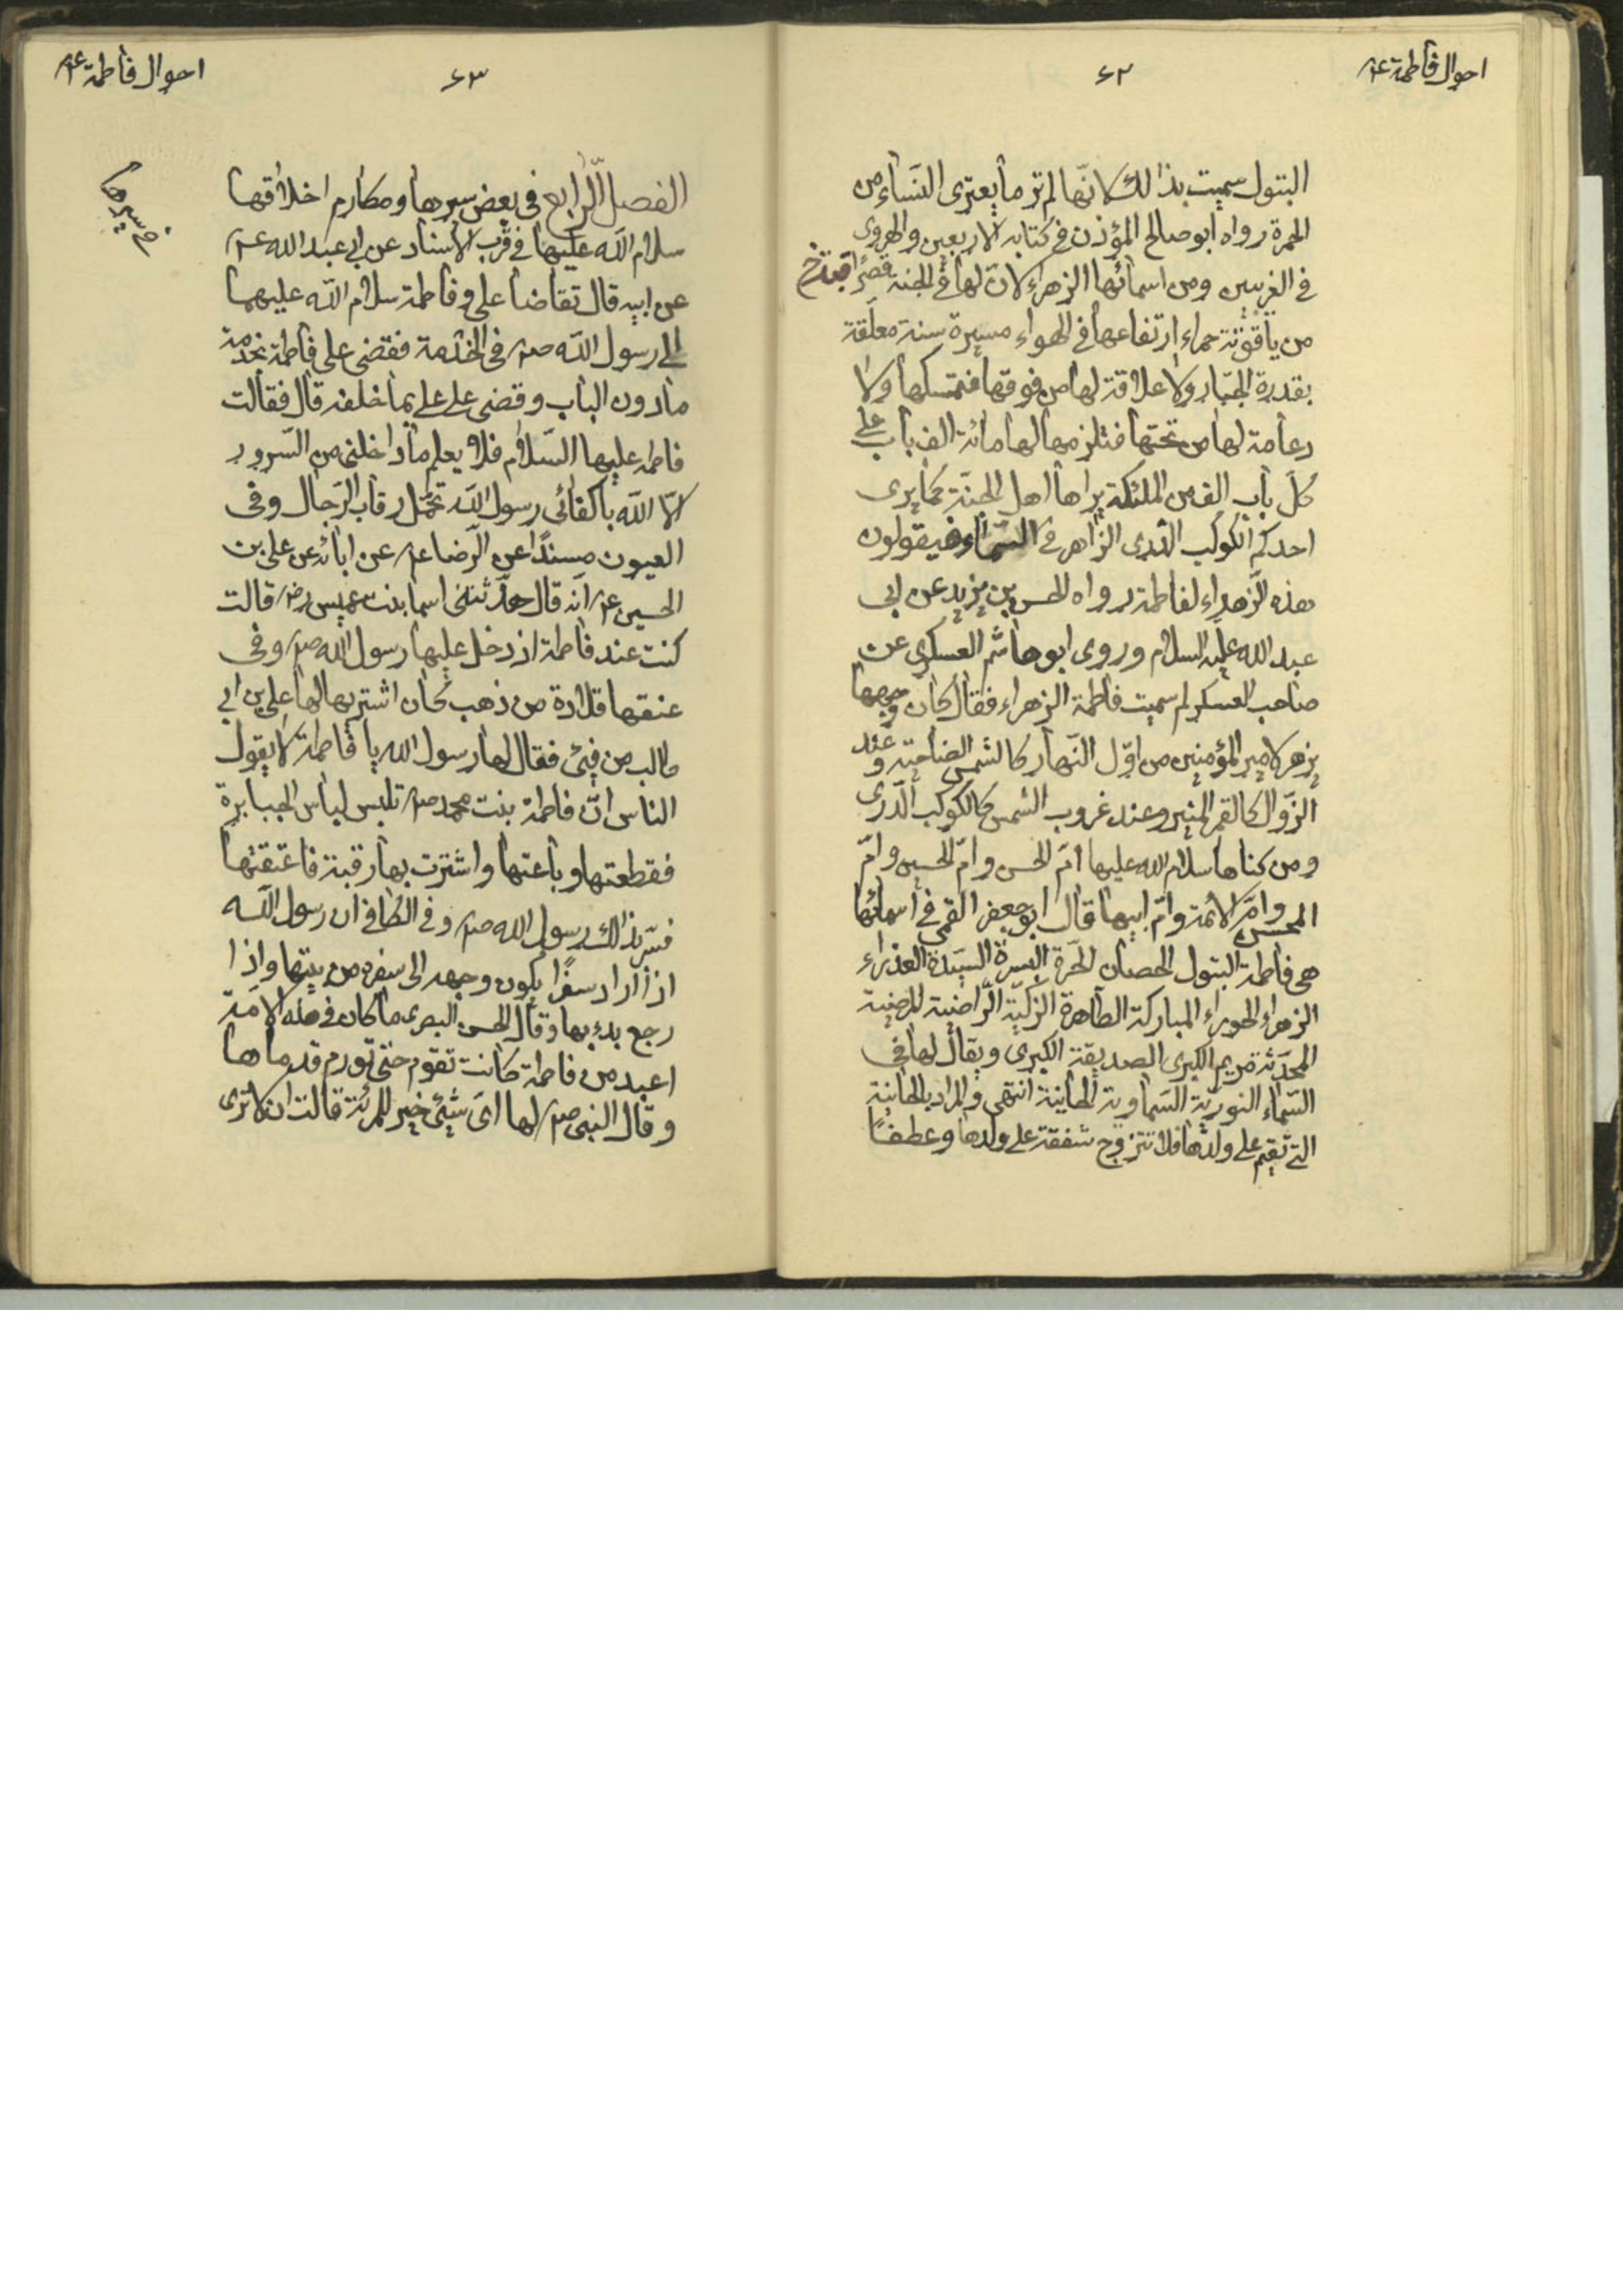 احوال فاطمة ع
٦٢
البتول سميت بذلك لانّها لم تر ما يعترى النساء من
الحمرة رواه ابو صالح المؤذن فى كتابه الاربعين والهروى
فى الغريبين ومن اسمائها الزهراء لانّ لها فى الجنة قصرًا قبة خ
من ياقوتة حمراء ارتفاعها فى الهواء مسيرة سنة معلّقة
بقدرة الجبّار ولا علاقة لها من فوقها فتمسكها ولا
دعامة لها من تحتها فتلزمها لها مائة الف باب على
كلّ باب الف من الملئكة يراها اهل الجنّة كما يرى
احدكم الكوكب الدّرى الزاهر فى السّماء فيقولون
هذه الزّهراء لفاطمة رواه الحسن بن يزيد عن ابى
عبد الله عليه السلام وروى ابو هاشم العسكرى عن
صاحب العسكر لم سميت فاطمة الزهراء فقال كان وجهها
يزهر لامير المؤمنين من اوّل النّهار كالشمس الضاحية وعند
الزّوال كالقمر المنير وعند غروب الشمس كالكوكب الدّرى
ومن كناها سلام الله عليها امّ الحسن وامّ الحسين وامّ
المحسن وامّ الائمة وامّ ابيها قال ابو جعفر القمى فى اسمائها
هى فاطمة البتول الحصان الحرّة السيّدة العذراء
الزهراء الحوراء المباركة الطاهرة الزكيّة الرّاضية المرضية
المحدّثة مريم الكبرى الصديقة الكبرى ويقال لها فى
السّماء النوريّة السّماوية الحانية انتهى والمراد بالحانية
التى تقيم على ولدها فلا تتزوّج شفقة على ولدها وعطفًا
احوال فاطمة ع
٦٣
فى سيرها
الفصل الرّابع فى بعض سيرها ومكارم اخلاقها
سلام الله عليها فى قرب الاسناد عن ابى عبد الله ع
عن ابيه قال تقاضا على وفاطمة سلام الله عليهما
الى رسول الله ص فى الخدمة فقضى على فاطمة بخدمة
مادون الباب وقضى على على بما خلفه قال فقالت
فاطمه عليها السّلام فلا يعلم ما داخلنى من السّرور
الّا الله باكفائى رسول الله تحمّل رقاب الرّجال وفى
العيون مسندًا عن الرّضا ع عن ابائه عن على بن
الحسين ع انّه قال حدّثتنى اسما بنت عميس رض قالت
كنت عند فاطمة اذ دخل عليها رسول الله ص وفى
عنقها قلادة من ذهب كان اشتريها لها على بن ابى
طالب من فيئ فقال لها رسول الله يا فاطمة لا يقول
الناس انّ فاطمة بنت محمد ص تلبس لباس الجبابرة
فقطعتها وباعتها واشترت بها رقبة فاعتقتها
فسّر بذالك رسول الله ص وفى الكافى ان رسول الله
اذا اراد سفرًا يكون وجهه الى سفره من بيتها واذا
رجع بدء بها وقال الحسن البصرى ما كان فى هذه الامّة
اعبد من فاطمة كانت تقوم حتى تورم قدماها
وقال النبى ص لها اىّ شيئ خير للمرئة قالت ان لا ترى